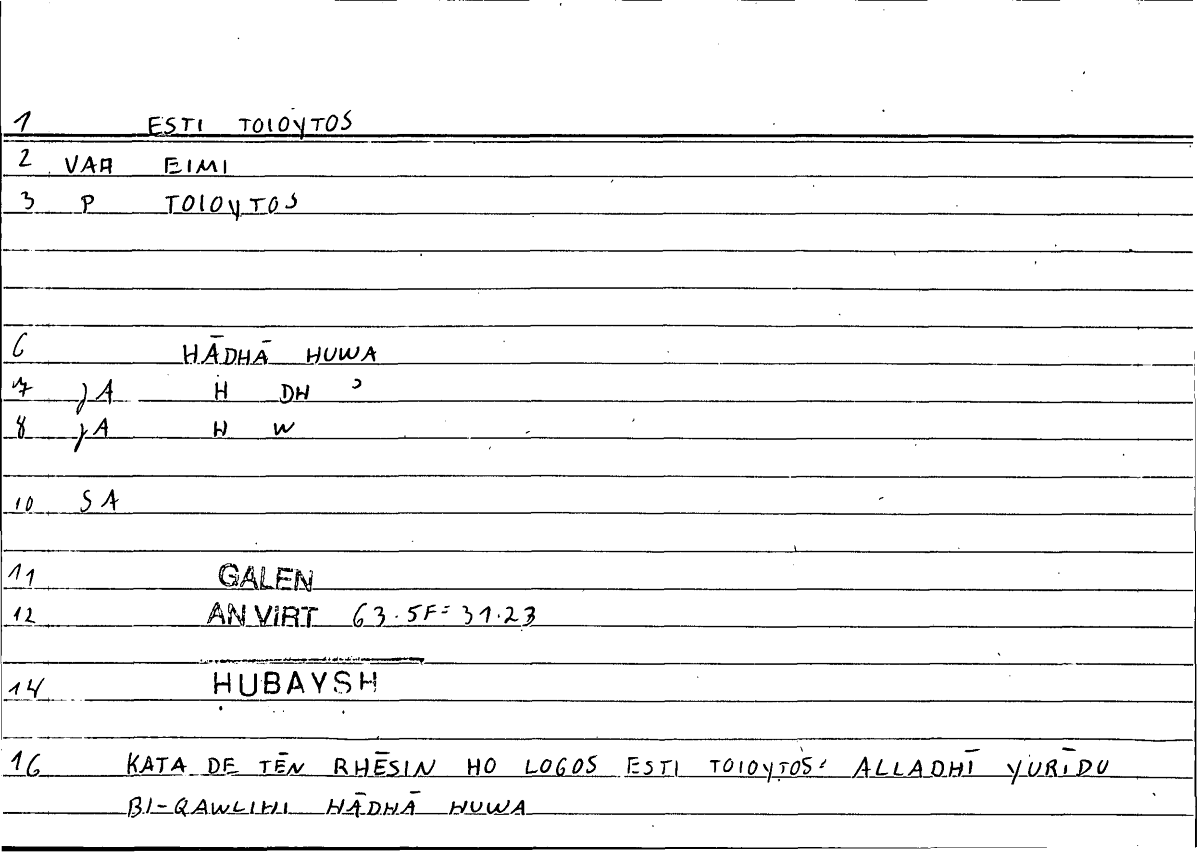 1 ESTI TOIOYTOS
2 VAR EIMI
3 P TOIOYTOS
6 HĀDHĀ HUWA
7 jA H DH ʾ
8 jA H W
10 SA
11 GALEN
12 AN VIRT 63.5F = 31.23
14 HUBAYSH
16 KATA DE TĒN RHĒSIN HO LOGOS ESTI TOIOYTOS: ALLADHĪ YURĪDU
BI-QAWLIHI HĀDHĀ HUWA